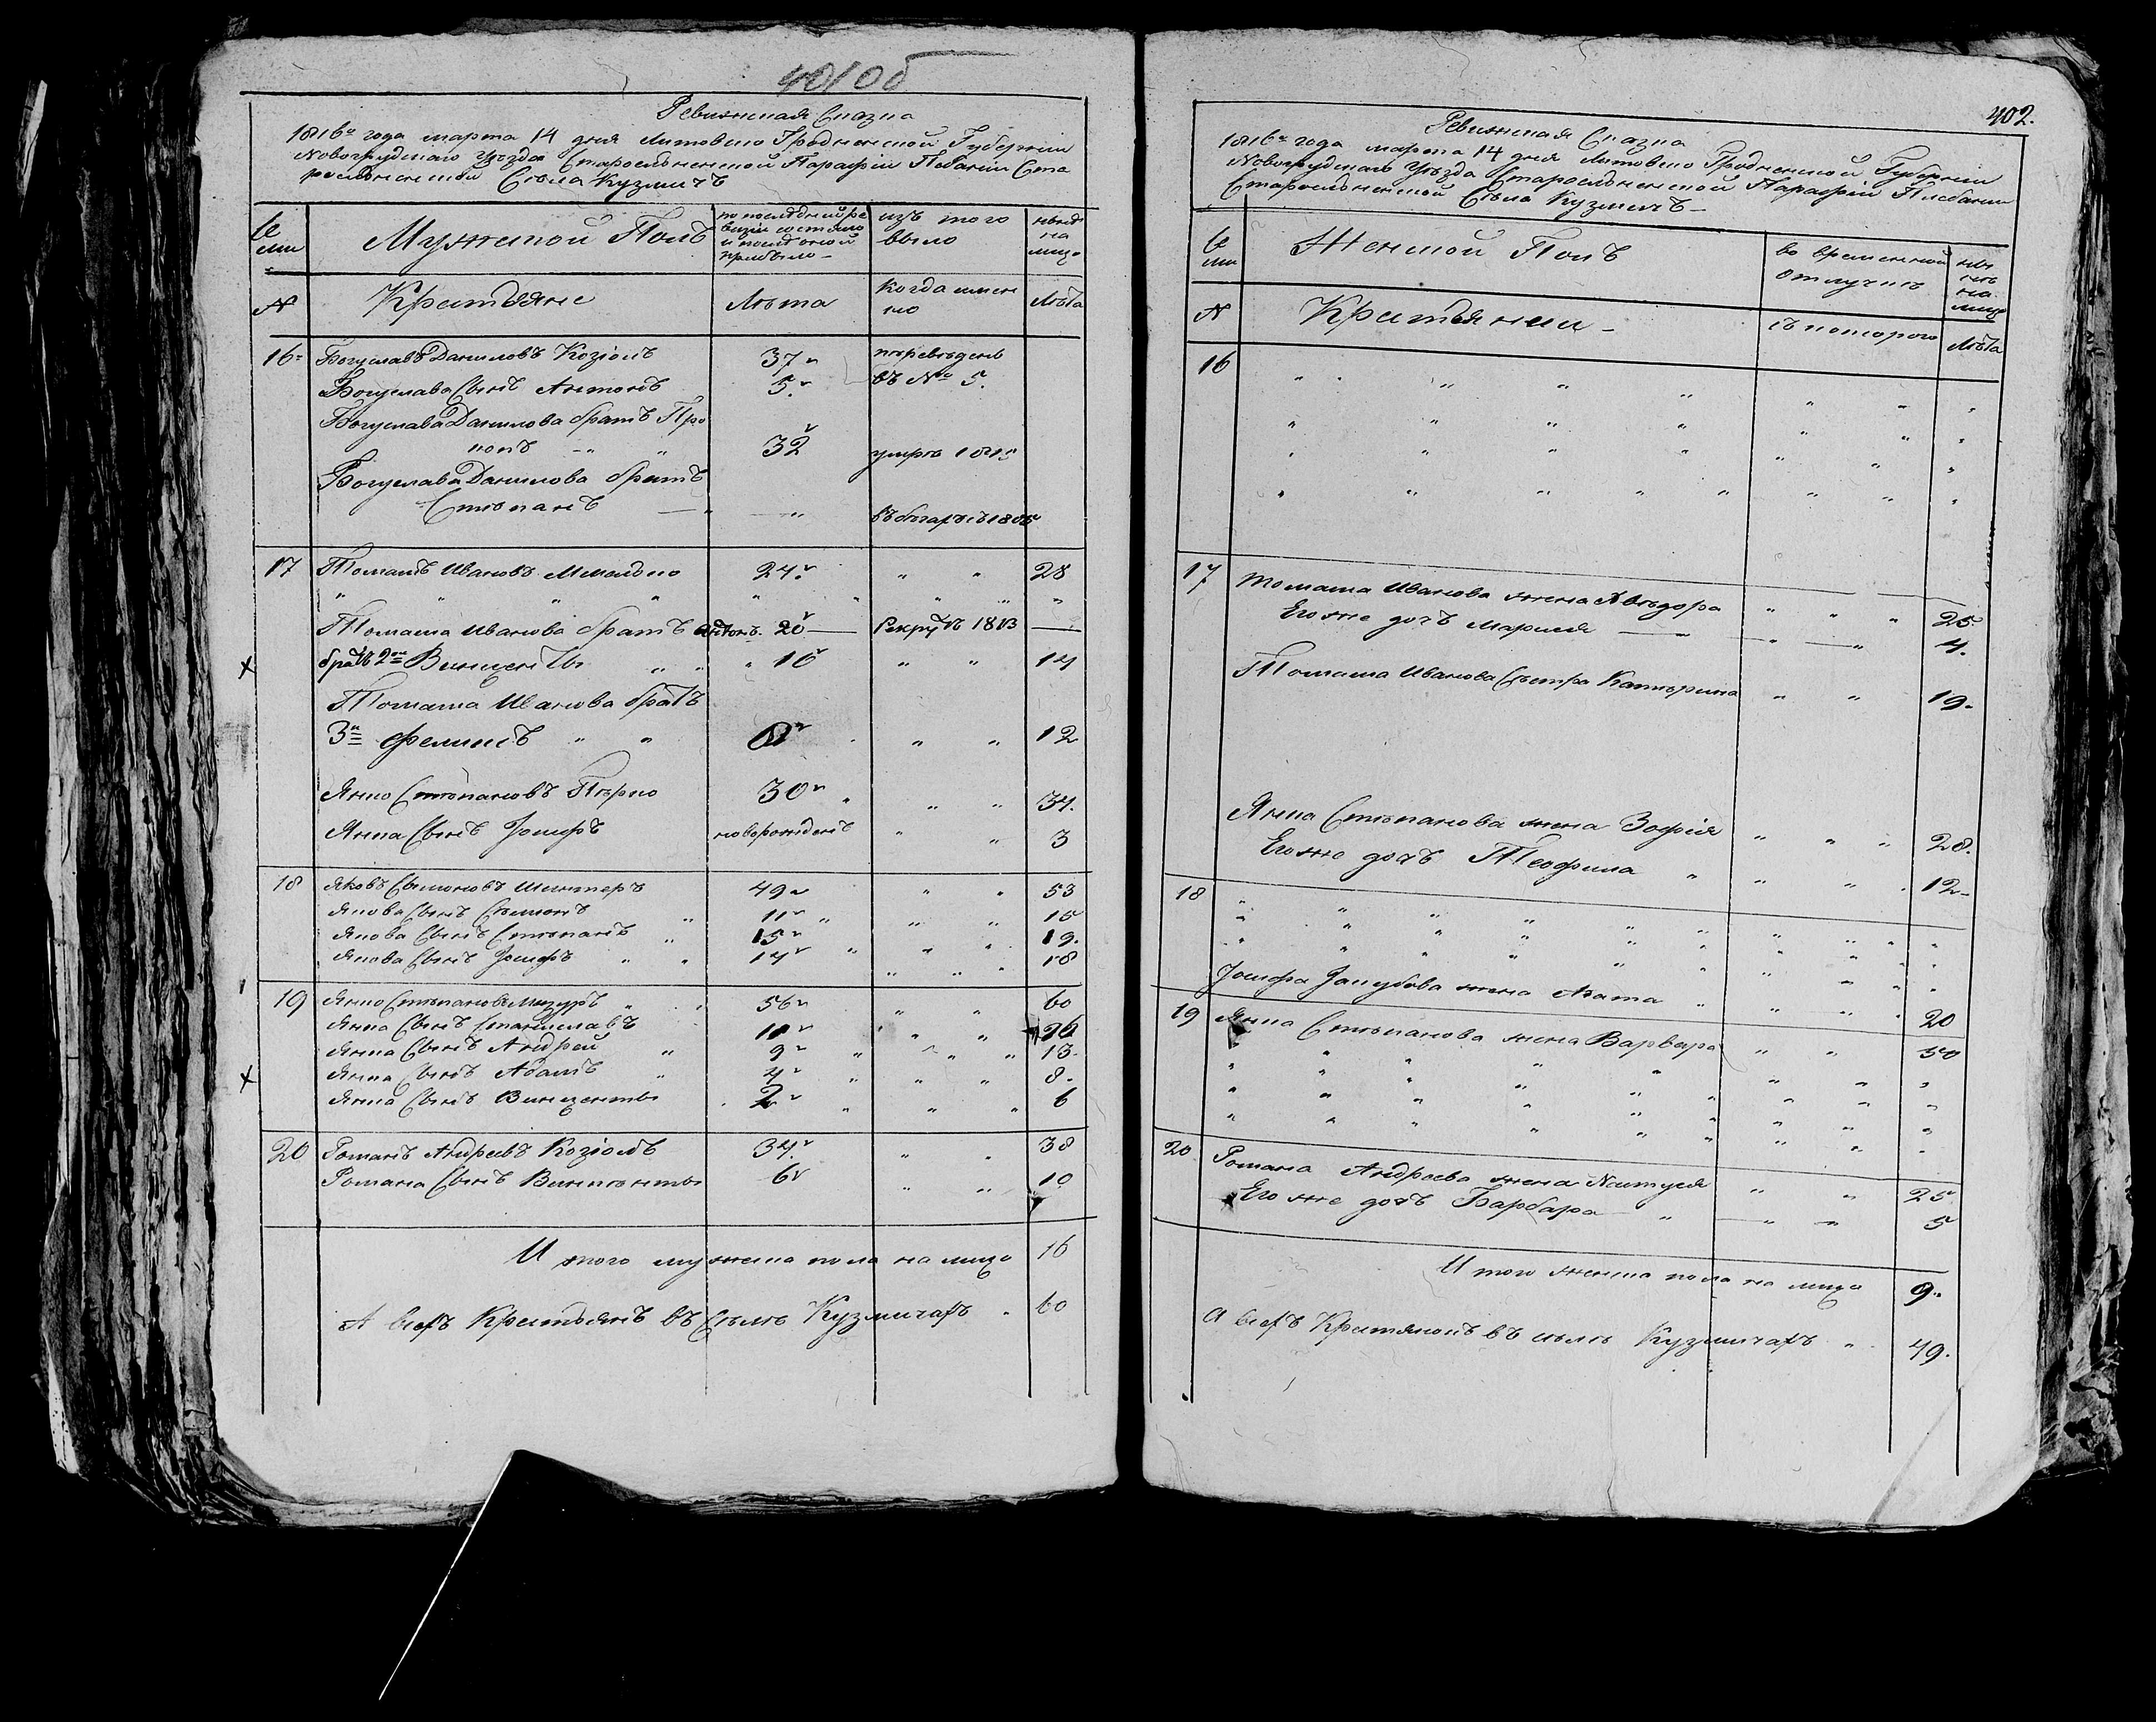 401об
Ревижская Сказка
1816го года марта 14 дня Литовско Гродненской Губернии
Новогрудскаго Уезда Старосельненской Парафіи Плебаніи Ста
росельненской Села Кузмичъ
Се
мьи
Мужеской Полъ
по последней ре
визіи состояло
и после оной
прибыло
изъ того
было
ныне
на
лицо
№
Крестьяне
Лѣта
когда имен
но
Лѣта
16
Богуславъ Даниловъ Козіолъ
37
переведенъ
Богуслава Сынъ Антонъ
5.
въ № 5.
Богуслава Данилова братъ Про
копъ
32
умре 1815
Богуслава Данилова братъ
Степанъ
въ бегахъ съ 1805
17
Томашъ Ивановъ
24
28
Томаша Иванова братъ Антонъ
20
Рекрутъ 1813
братъ 2й Винценты
10
14
Томаша Иванова братъ
3й Феликсъ
8
12
Янко Степановъ Перко
30
34.
Янка Сынъ Іосифъ
новорожденъ
3
18
Яковъ Семеновъ
49
53
Якова Сынъ Семенъ
11
15
Якова Сынъ Степанъ
15
19.
Якова Сынъ Іосифъ
14
18
19
Янко Степановъ Мизуръ
56
60
Янка Сынъ Станиславъ
16
Янка Сынъ Андрей
9
13.
Янка Сынъ Адамъ
4
8.
Янка Сынъ Винценты
2
6
20
Романъ Андреевъ Козіолъ
34.
38
Романа Сынъ Винценты
6
10
И того мужеска пола на лицо
16
А всехъ Крестьянъ въ Селе Кузмичахъ
60
402.
Ревижская Сказка
1816го года марта 14 дня Литовско Гродненской Губерніи
Новогрудскаго Уезда Старосельненской Парафіи Плебаніи
Старосельненской Села Кузмичъ
Се
мьи
Женской Полъ
во временной
отлучке
ны
не
на
лицо
№
Крестьянки
съ котораго
Лѣта
16
17
Томаша Иванова жена Авдора
25
Его же дочь Марися
4.
Томаша Иванова Сестра Катерина
19.
Янка Степанова жена Зофія
28.
Его же дочь Теофила
12
18
Іосифа Якубова жена Агата
20
19
Янка Степанова жена Варвара
50
20
Романа Андреева жена Настуся
25
Его же дочь Барбара
5
И того женска пола на лицо
9.
А всехъ Крестянокъ въ селе Кузмичахъ
49.